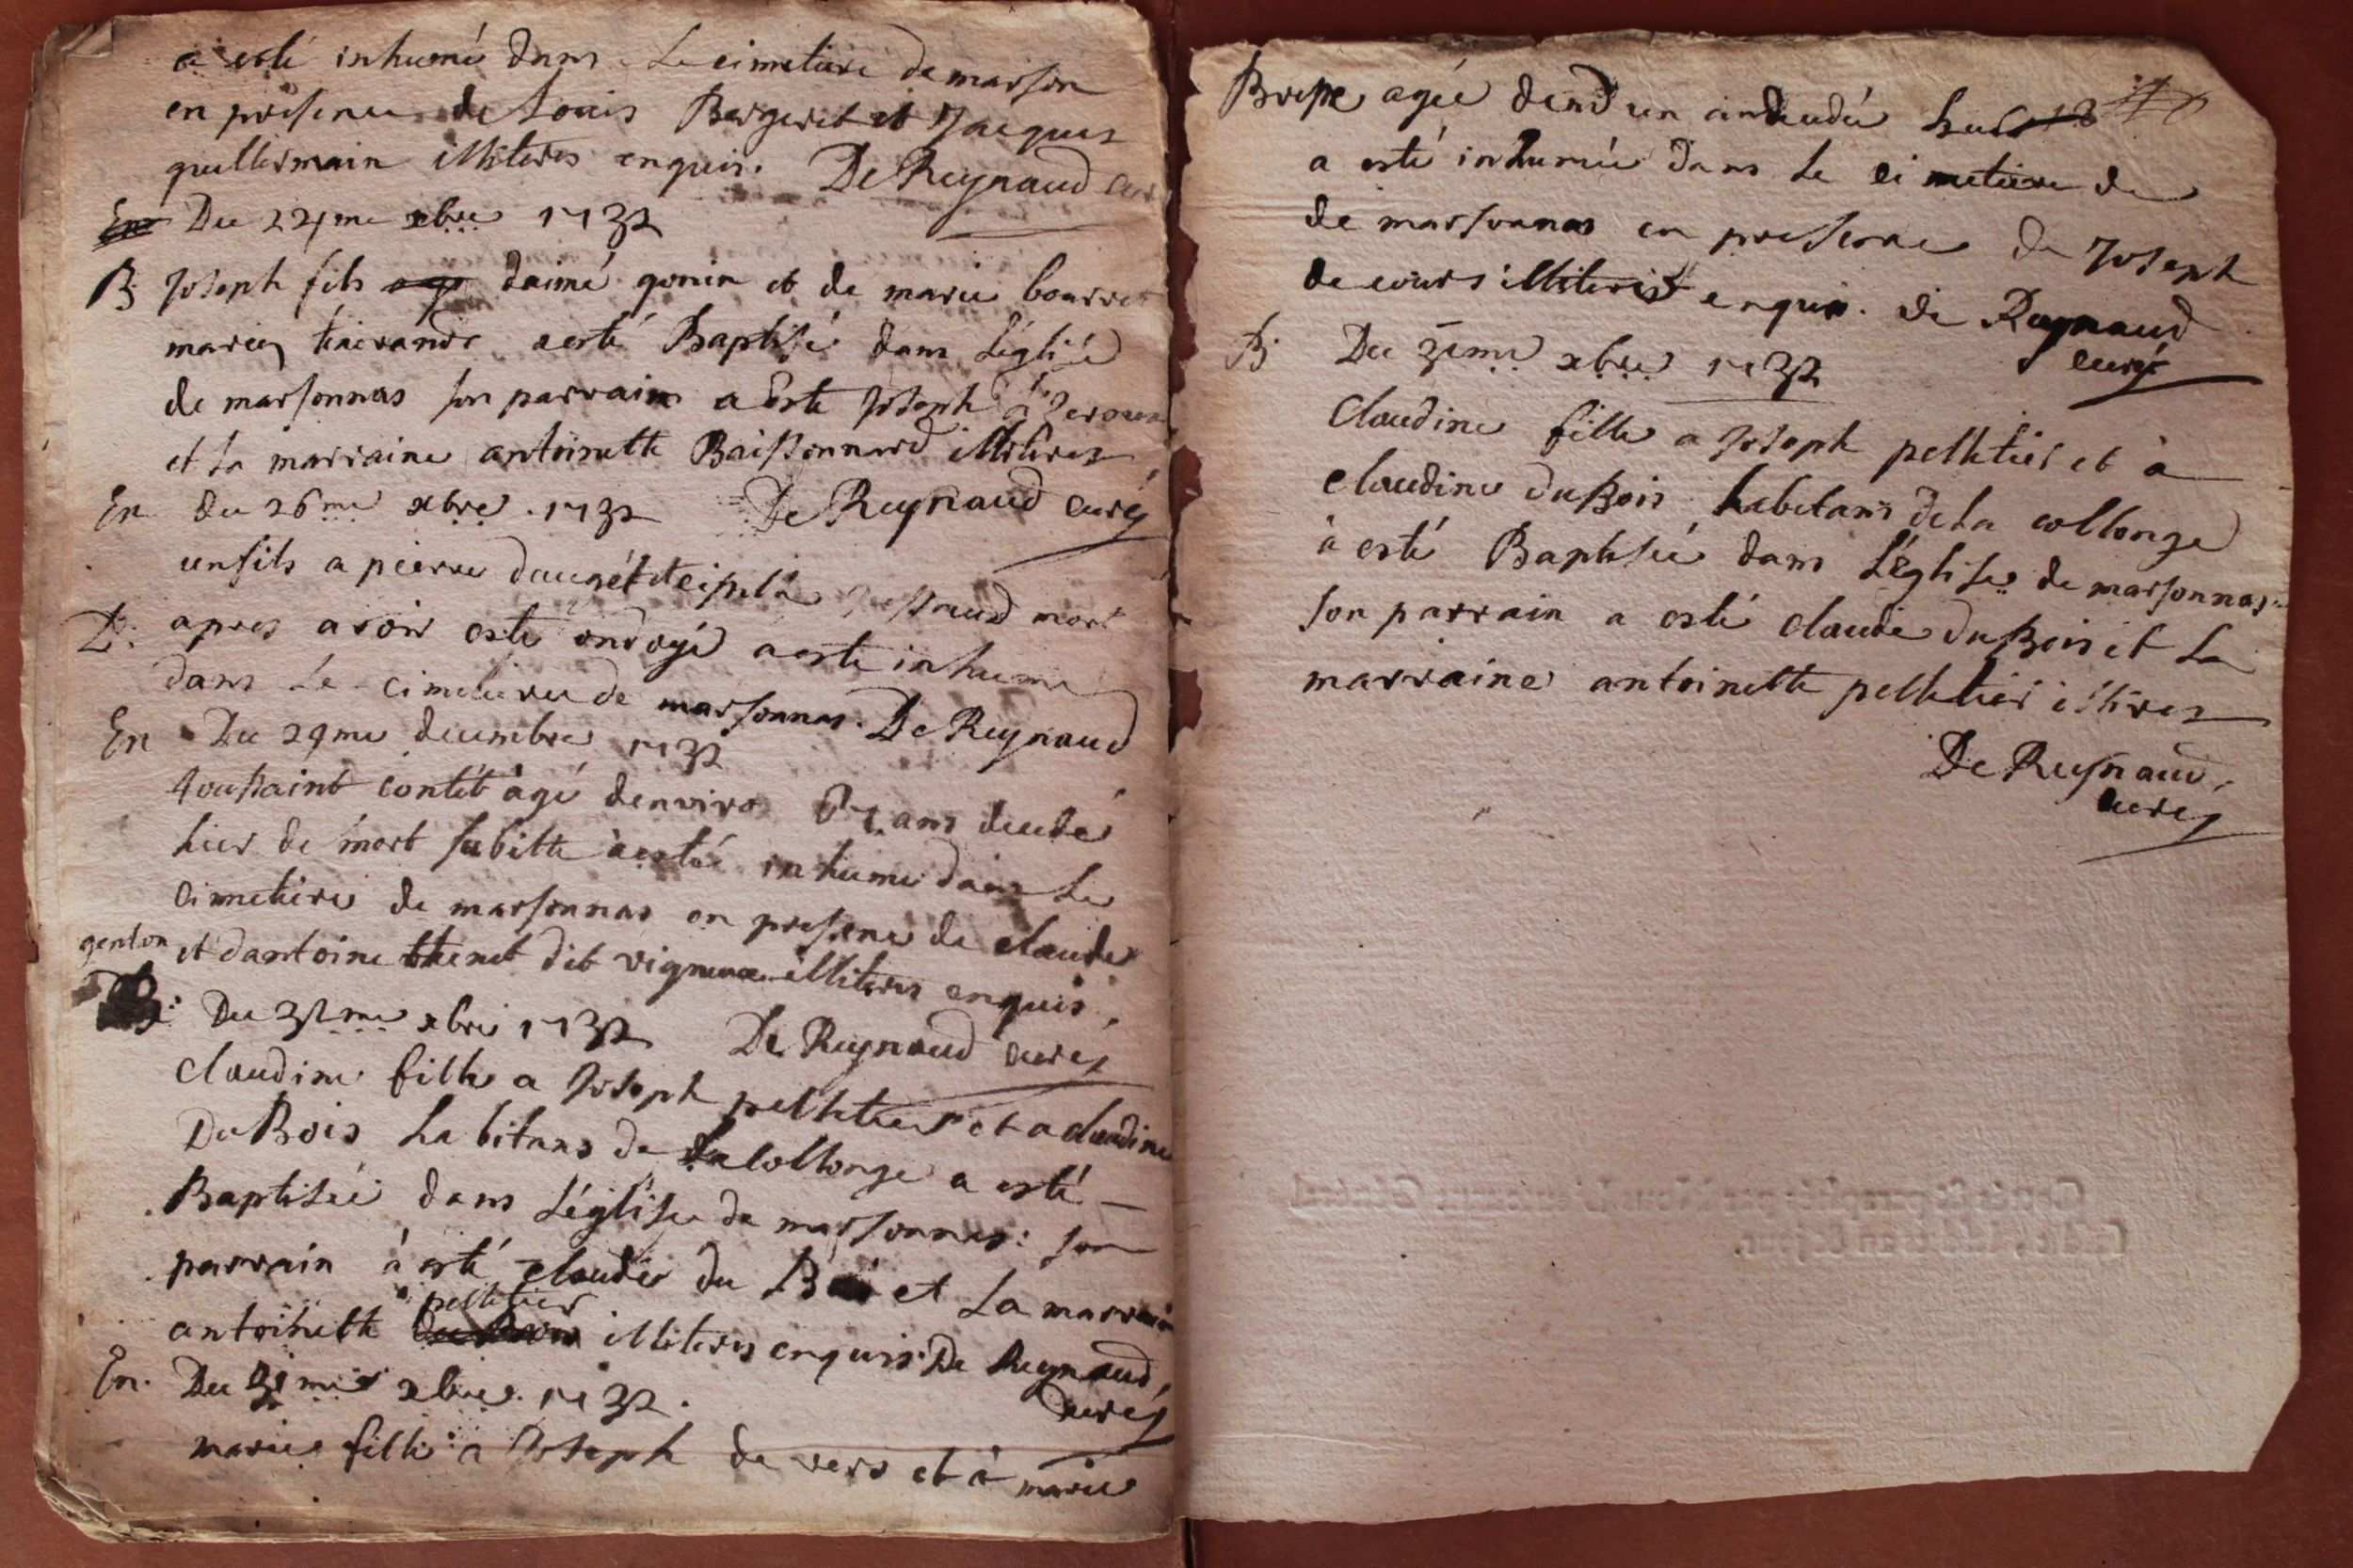 a esté inhumé dans Le cimetiere de marson
en presence de Louis Bergeret et Jacques
guillermain illiteres enquis. De Reynaud
Du 22me xbre 1732
B Joseph fils daimé gonin et de marie bourret
mariez a esté Baptisé dans L'églisé
de marsonnas son parrain a Este Joseph
et La marraine antoinette Baissonnard illiteres
En du 26me xbre . 1732 De Reynaud curéz
un fils a pierre mort
apres avoir este ondoyé a este inhume
dans Le Cimetiere de marsonnas. De Reynaud
En Du 29me decembre 1732
toussaint contét agé denviron ans decedé
hier de mort subitte a esté inhume dans Le
Cimetiere de marsonnas en presence de claude
genton et dantoine thenet dit vigneux illiteres enquis.
B: Du 31me xbre 1732 De Reynaud curéz
Claudine fille a Joseph pelletier et a claudine
DuBois habitans de La Collonge a esté –
Baptisée dans L'églize de marsonnas: son
parrain à esté claude du Bois et La marraine
pelletier
antoinette illiteres enquis. De Reynaud,
curéz
En. Du 31me xbre. 1732.
marie fille a Joseph de vers et à marie
agée dend un an
a esté inhumée dans Le cimetiere de
de marsonnas en presence de Joseph
de cours illiteres enquis. de Reynaud
curéz
B Du 31me xbre 1732
Claudine fille a Joseph pelletier et à
claudine duBois habitans de La collonge
à esté Baptisée dans L'églize de marsonnas:
son parrain a esté claude duBois et La
marraine antoinette pelletier illires
De Reynaud,
curéz